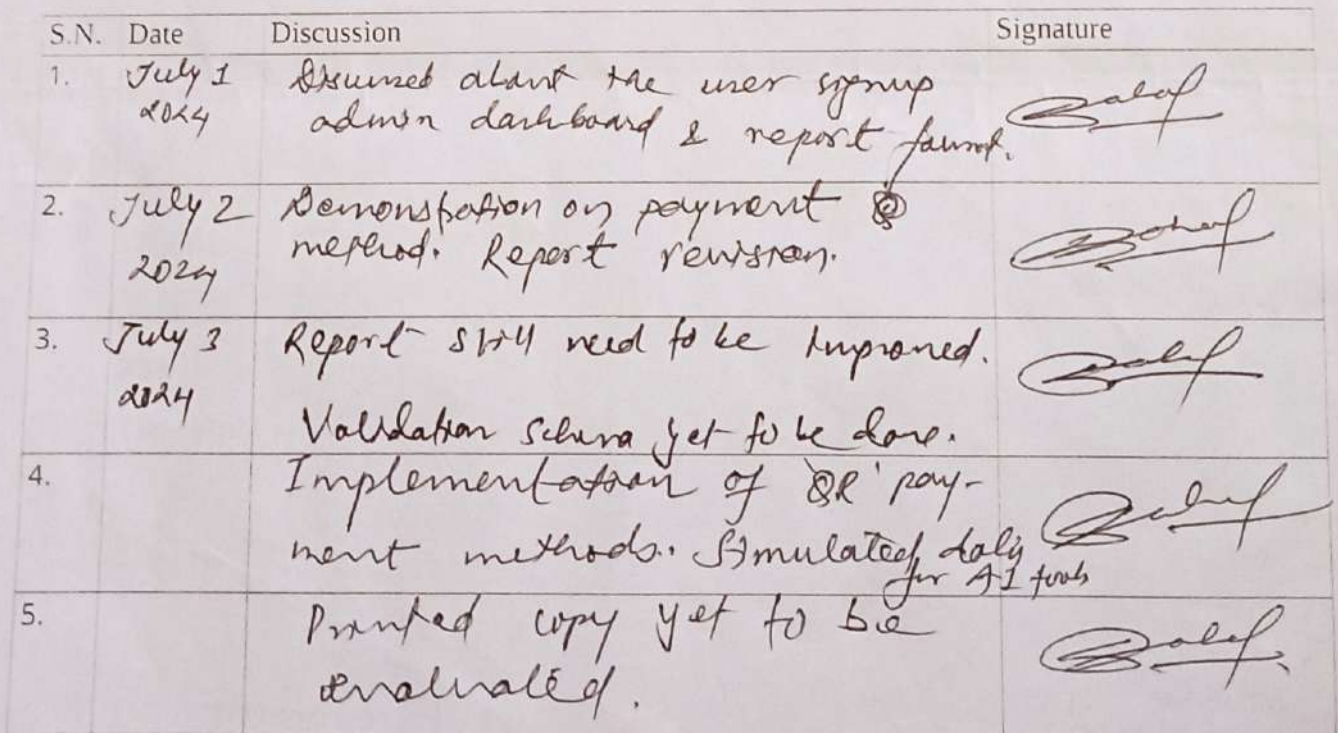 S.N. Date Discussion Signature
1. July 1 Discussed about the user signup
2024 admin dashboard & report
2. July 2 Demonstration on payment
2024 method. Report revision.
3. July 3 Report still need to be improved.
2024 Validation schema yet to be done.
4. Implementation of QR pay-
ment methods. Simulated
for AI tools
5. Printed copy yet to be
evaluated.